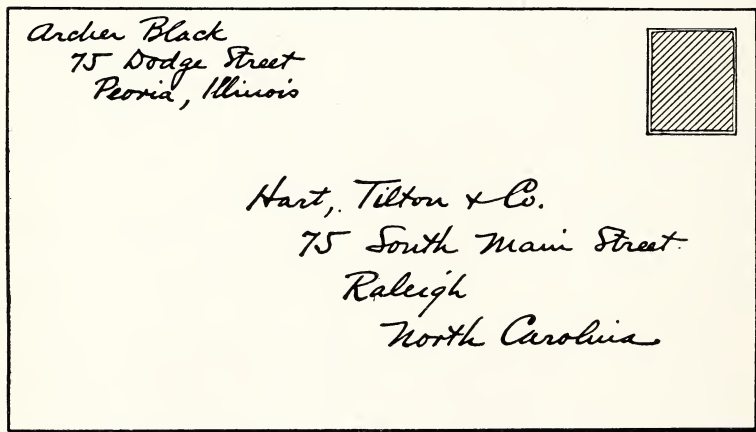 Archer Black
75 Dodge Street
Peoria, Illinois
Hart, Tilton & Co.
75 South Main Street
Raleigh
North Carolina